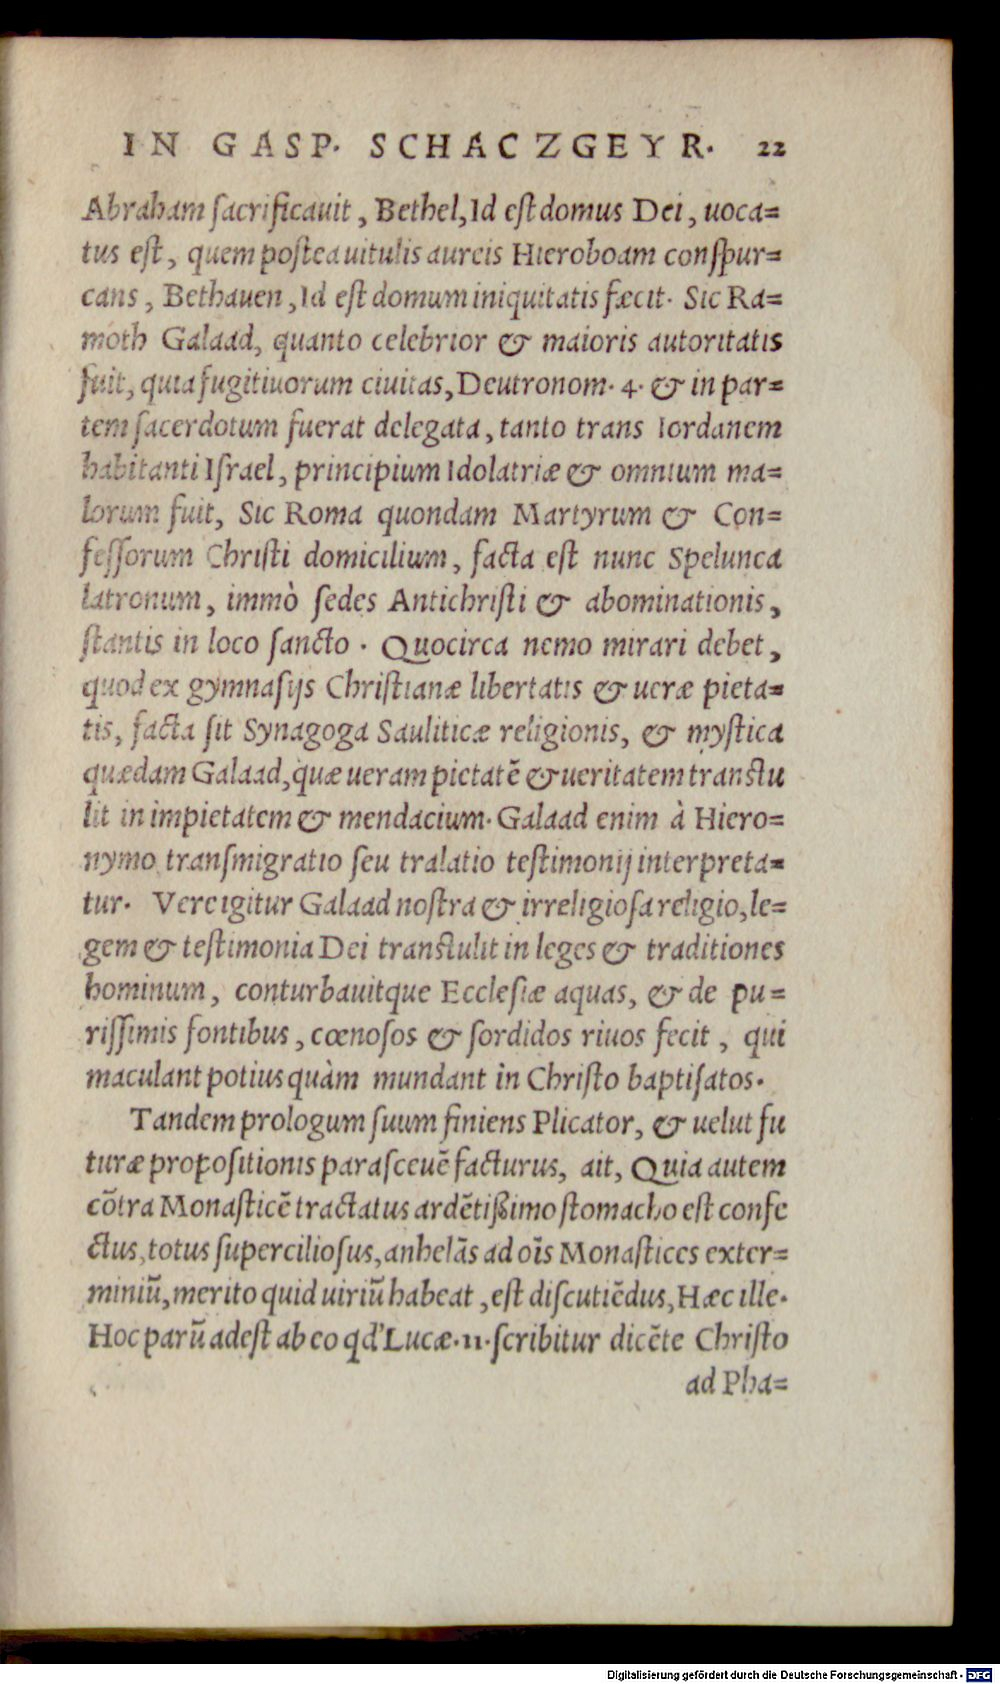 IN GASP. SCHACZGEYR. 22
Abraham sacrificauit, Bethel, Id est domus Dei, uoca=
tus est, quem postea uitulis aureis Hieroboam conspur=
cans, Bethauen, Id est domum iniquitatis fæcit. Sic Ra=
moth Galaad, quanto celebrior & maioris autoritatis
fuit, quia fugitiuorum ciuitas, Deutronom. 4. & in par=
tem sacerdotum fuerat delegata, tanto trans Iordanem
habitanti Israel, principium Idolatriæ & omnium ma=
lorum fuit, Sic Roma quondam Martyrum & Con=
fessorum Christi domicilium, facta est nunc Spelunca
latronum, immò sedes Antichristi & abominationis,
stantis in loco sancto. Quocirca nemo mirari debet,
quod ex gymnasijs Christianæ libertatis & ueræ pieta=
tis, facta sit Synagoga Sauliticæ religionis, & mystica
quædam Galaad, quæ ueram pietatē & ueritatem transtu
lit in impietatem & mendacium. Galaad enim à Hiero=
nymo transmigratio seu tralatio testimonij interpreta=
tur. Vere igitur Galaad nostra & irreligiosa religio, le=
gem & testimonia Dei transtulit in leges & traditiones
hominum, conturbauitque Ecclesiæ aquas, & de pu=
rissimis fontibus, cœnosos & sordidos riuos fecit, qui
maculant potius quàm mundant in Christo baptisatos.
Tandem prologum suum finiens Plicator, & uelut fu
turæ propositionis parasceuē facturus, ait, Quia autem
cōtra Monasticē tractatus ardētißimo stomacho est confe
ctus, totus superciliosus, anhelās ad oīs Monastices exter=
miniū, merito quid uiriū habeat, est discutiēdus, Hæc ille.
Hoc parū adest ab eo qd' Lucæ. 11. scribitur dicēte Christo
ad Pha=
Digitalisierung gefördert durch die Deutsche Forschungsgemeinschaft - DFG